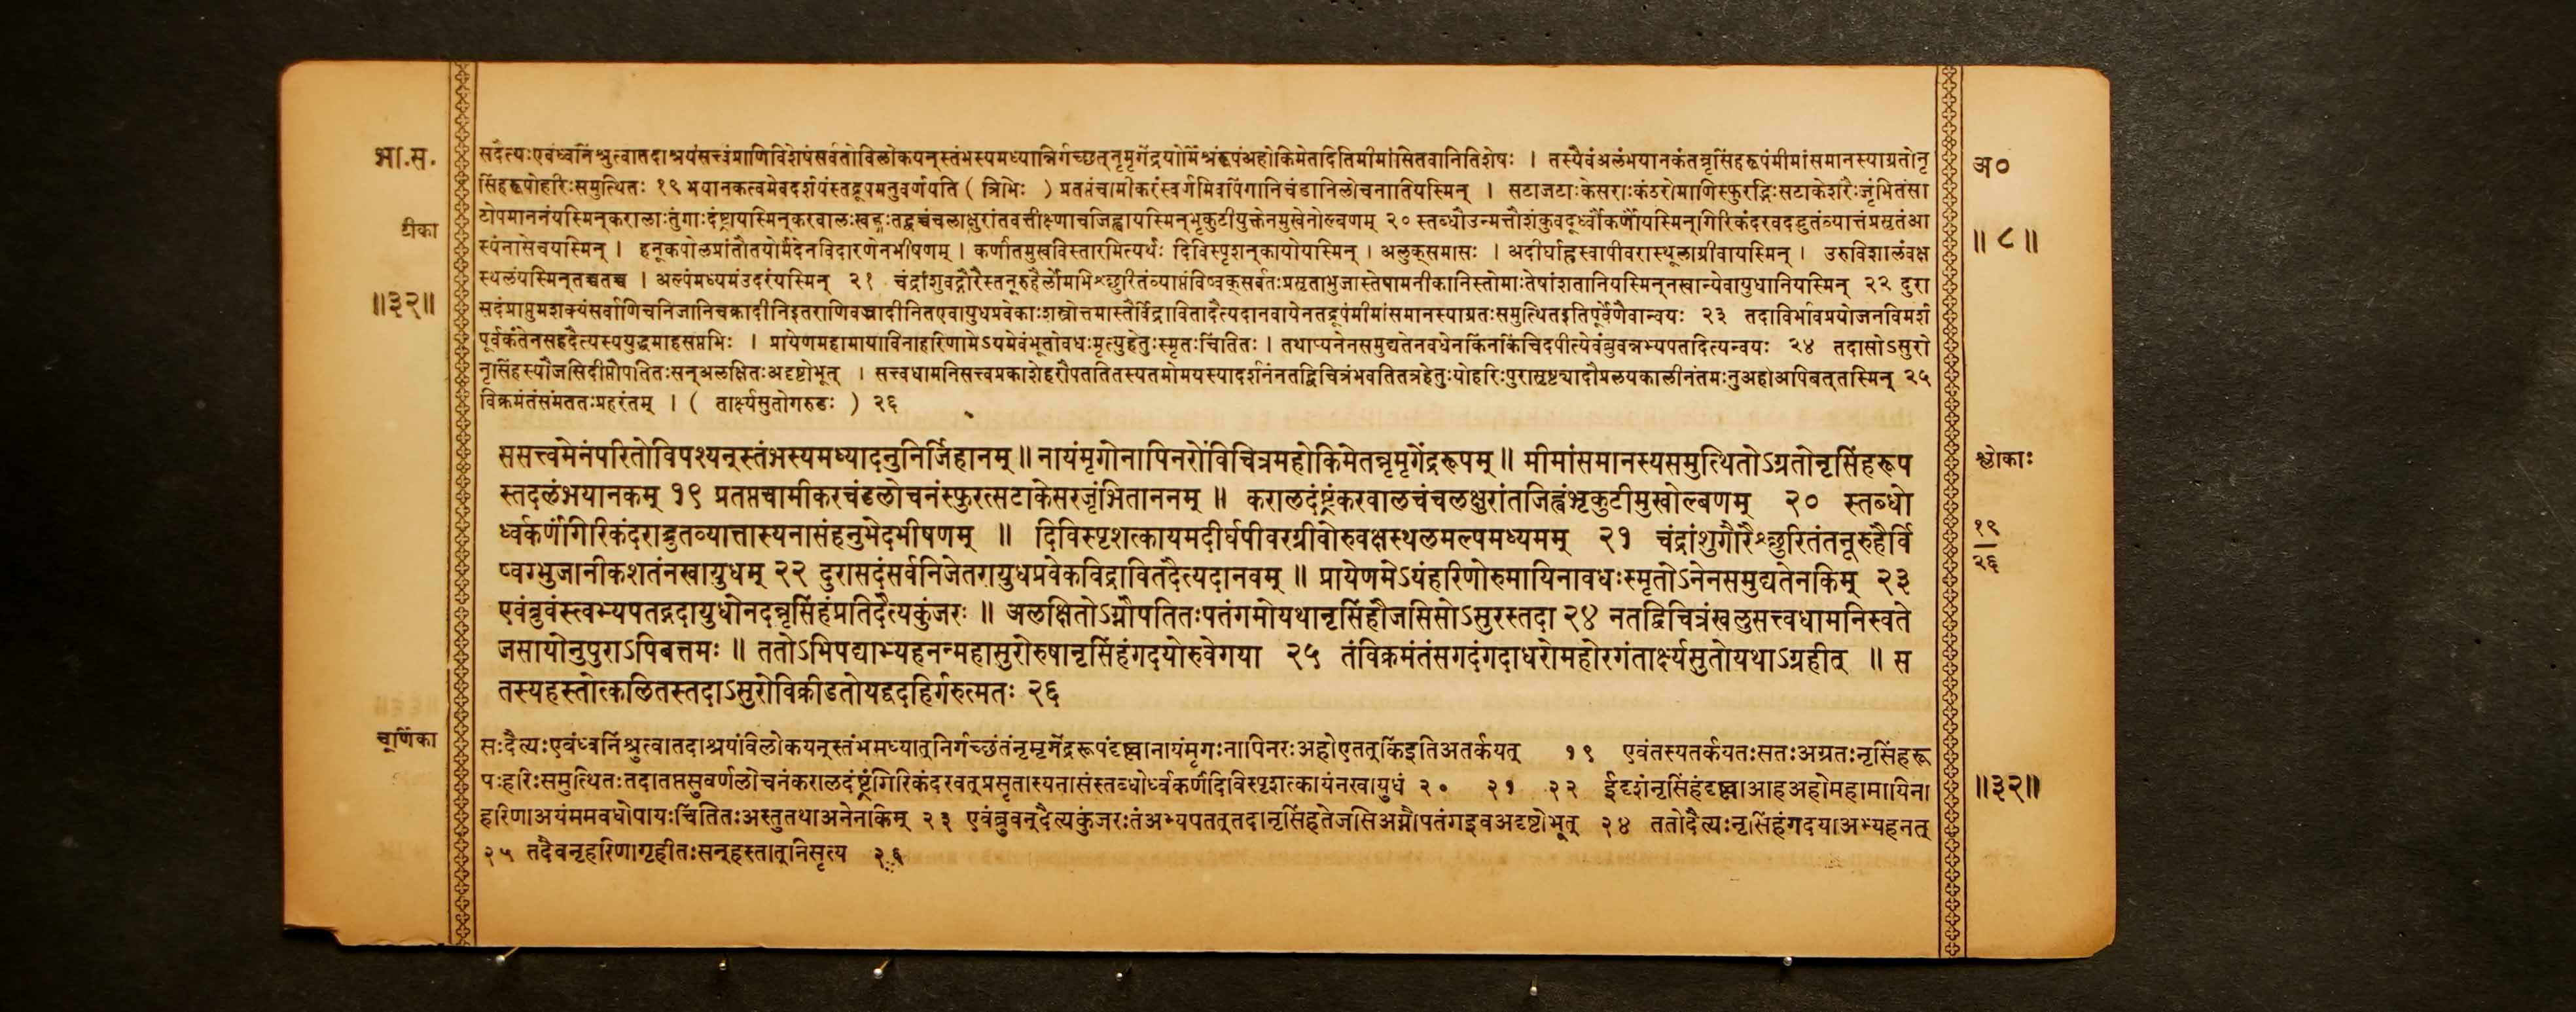 भा.स.
टीका
॥३२॥
सदैत्यःएवंध्वनिंश्रुत्वातदाश्रयंसत्त्वंप्राणिविशेषंसर्वतोविलोकयन्स्तंभस्यमध्यान्निर्गच्छत्नृमृगेंद्रयोर्मिश्रंरूपंअहोकिमेतदितिमीमांसितवानितिशेषः । तस्यैवंअलंभयानकंतन्नृसिंहरूपंमीमांसमानस्याग्रतोनृ
सिंहरूपोहरिःसमुत्थितः १९ भयानकत्वमेवदर्शयंस्तद्रूपमनुवर्णयति ( त्रिभिः ) प्रतप्तंचामीकरंस्वर्णमिवपिंगानिचंडानिलोचनातियस्मिन् । सटाजटाःकेसराःकंठरोमाणिस्फुरद्भिःसटाकेशरैःजृंभितंसा
टोपमाननंयस्मिन्करालाःतुंगाःदंष्ट्रायस्मिन्करवालःखड्गःतद्वच्चंचलाक्षुरांतवत्तीक्ष्णाचजिह्वायस्मिन्भृकुटीयुक्तेनमुखेनोल्बणम् २० स्तब्धौउन्मत्तौशंकुवदूर्ध्वौकर्णौयस्मिन्गिरिकंदरवदद्भुतंव्यात्तंप्रसृतंआ
स्यंनासेचयस्मिन् । हनूकपोलप्रांतौतयोर्भेदेनविदारणेनभीषणम् । कर्णांतमुखविस्तारमित्यर्थः दिविस्पृशन्कायोयस्मिन् । अलुक्समासः । अदीर्घाह्रस्वापीवरास्थूलाग्रीवायस्मिन् । उरुविशालंवक्ष
स्थलंयस्मिन्तच्चतच्च । अल्पंमध्यमंउदरंयस्मिन् २१ चंद्रांशुवद्गौरैस्तनूरुहैर्लोमाभिश्छुरितंव्याप्तंविष्वक्सर्वतःप्रसृताभुजास्तेषामनीकानिस्तोमाःतेषांशतानियस्मिन्नखान्येवायुधानियस्मिन् २२ दुरा
सदंप्राप्तुमशक्यंसर्वाणिचनिजानिचक्रादीनिइतराणिवज्रादीनितएवायुधप्रवेकाःशस्त्रोत्तमास्तैर्विद्रावितादैत्यदानवायेनतद्रूपंमीमांसमानस्याग्रतःसमुत्थितइतिपूर्वेणैवान्वयः २३ तदाविर्भावप्रयोजनविमर्श
पूर्वकंतेनसहदैत्यस्ययुद्धमाहसप्तभिः । प्रायेणमहामायाविनाहरिणामेऽयमेवंभूतोवधःमृत्युहेतुःस्मृतःचिंतितः । तथाप्यनेनसमुद्यतेनवधेनकिंनकिंचिदपीत्येवंब्रुवन्नभ्यपतदित्यन्वयः २४ तदासोऽसुरो
नृसिंहस्यौजसिदीप्तौपतितःसन्अलक्षितःअदृष्टोभूत् । सत्त्वधामनिसत्त्वप्रकाशेहरौपततितस्यतमोमयस्यादर्शनंनतद्विचित्रंभवतितत्रहेतुःयोहरिःपुरासृष्ट्यादौप्रलयकालीनंतमःनुअहोअपिबत्तस्मिन् २५
विक्रमंतंसंमततःप्रहरंतम् । ( तार्क्ष्यसुतोगरुडः ) २६
ससत्त्वमेनंपरितोविपश्यन्स्तंभस्यमध्यादनुनिर्जिहानम् ॥ नायंमृगोनापिनरोविचित्रमहोकिमेतन्नृमृगेंद्ररूपम् ॥ मीमांसमानस्यसमुत्थितोऽग्रतोनृसिंहरूप
स्तदलंभयानकम् १९ प्रतप्तचामीकरचंडलोचनंस्फुरत्सटाकेसरजृंभिताननम् ॥ करालदंष्ट्रंकरवालचंचलक्षुरांतजिह्वंभृकुटीमुखोल्बणम् २० स्तब्धो
र्ध्वकर्णंगिरिकंदराद्भुतव्यात्तास्यनासंहनुभेदभीषणम् ॥ दिविस्पृशत्कायमदीर्घपीवरग्रीवोरुवक्षस्थलमल्पमध्यमम् २१ चंद्रांशुगौरैश्छुरितंतनूरुहैर्वि
ष्वग्भुजानीकशतंनखायुधम् २२ दुरासदंसर्वनिजेतरायुधप्रवेकविद्रावितदैत्यदानवम् ॥ प्रायेणमेऽयंहरिणोरुमायिनावधःस्मृतोऽनेनसमुद्यतेनकिम् २३
एवंब्रुवंस्त्वभ्यपतद्गदायुधोनदन्नृसिंहंप्रतिदैत्यकुंजरः ॥ अलक्षितोऽग्नौपतितःपतंगमोयथानृसिंहौजसिसोऽसुरस्तदा २४ नतद्विचित्रंखलुसत्त्वधामनिस्वते
जसायोनुपुराऽपिबत्तमः ॥ ततोऽभिपद्याभ्यहनन्महासुरोरुषानृसिंहंगदयोरुवेगया २५ तंविक्रमंतंसगदंगदाधरोमहोरगंतार्क्ष्यसुतोयथाऽग्रहीत् ॥ स
तस्यहस्तोत्कलितस्तदाऽसुरोविक्रीडतोयद्वदहिर्गरुत्मतः २६
चूर्णिका
सःदैत्यःएवंध्वनिंश्रुत्वातदाश्रयंविलोकयन्स्तंभमध्यात्निर्गच्छंतंनृमृगेंद्ररूपंदृष्ट्वानायंमृगःनापिनरःअहोएतत्किंइतिअतर्कयत् १९ एवंतस्यतर्कयतःसतःअग्रतःनृसिंहरू
पःहरिःसमुत्थितःतदातप्तसुवर्णलोचनंकरालदंष्ट्रंगिरिकंदरवत्प्रसृतास्यनासंस्तब्धोर्ध्वकर्णंदिविस्पृशत्कायंनखायुधं २० २१ २२ ईदृशंनृसिंहंदृष्ट्वाआहअहोमहामायिना
हरिणाअयंममवधोपायःचिंतितःअस्तुतथाअनेनकिम् २३ एवंब्रुवन्दैत्यकुंजरःतंअभ्यपतत्तदानृसिंहतेजसिअग्नौपतंगइवअदृष्टोभूत् २४ ततोदैत्यःनृसिंहंगदयाअभ्यहनत्
२५ तदैवनृहरिणागृहीतःसन्हस्तात्निसृत्य २६
अ०
॥ ८ ॥
श्लोकाः
१९
२६
॥३२॥